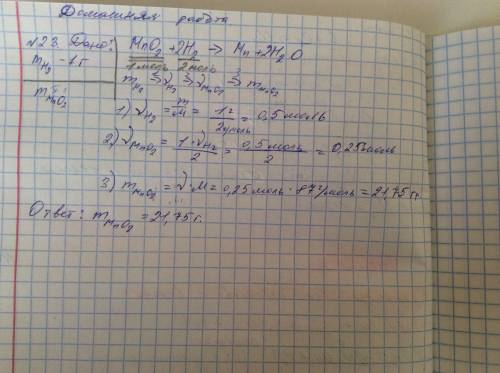 Домашняя работа
№23. Дано: MnO₂ + 2H₂ → Mn + 2H₂O
m H₂ - 1 г 1 моль 2 моль
m MnO₂ m H₂ → ν H₂ → ν MnO₂ → m MnO₂
1) ν H₂ = m/M = 1 г/2 г/моль = 0,5 моль
2) ν MnO₂ = 1·ν H₂/2 = 0,5 моль/2 = 0,25 моль
3) m MnO₂ = ν · M = 0,25 моль · 87 г/моль = 21,75 г.
Ответ: m MnO₂ = 21,75 г.